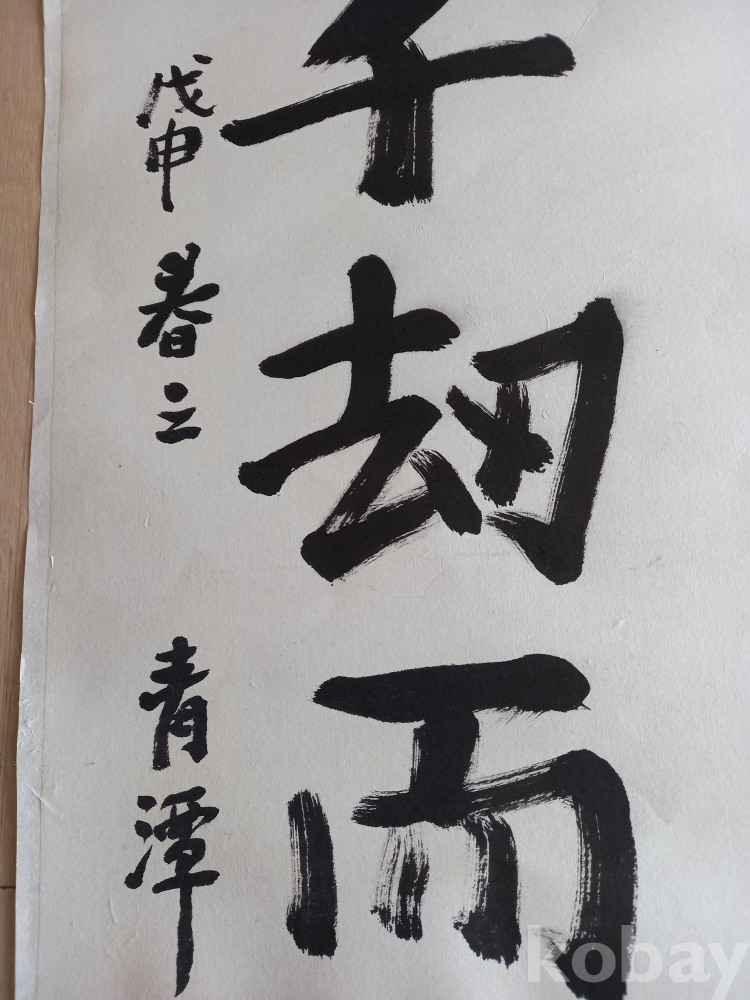 千刼而
戊申春之 青潭
kobay